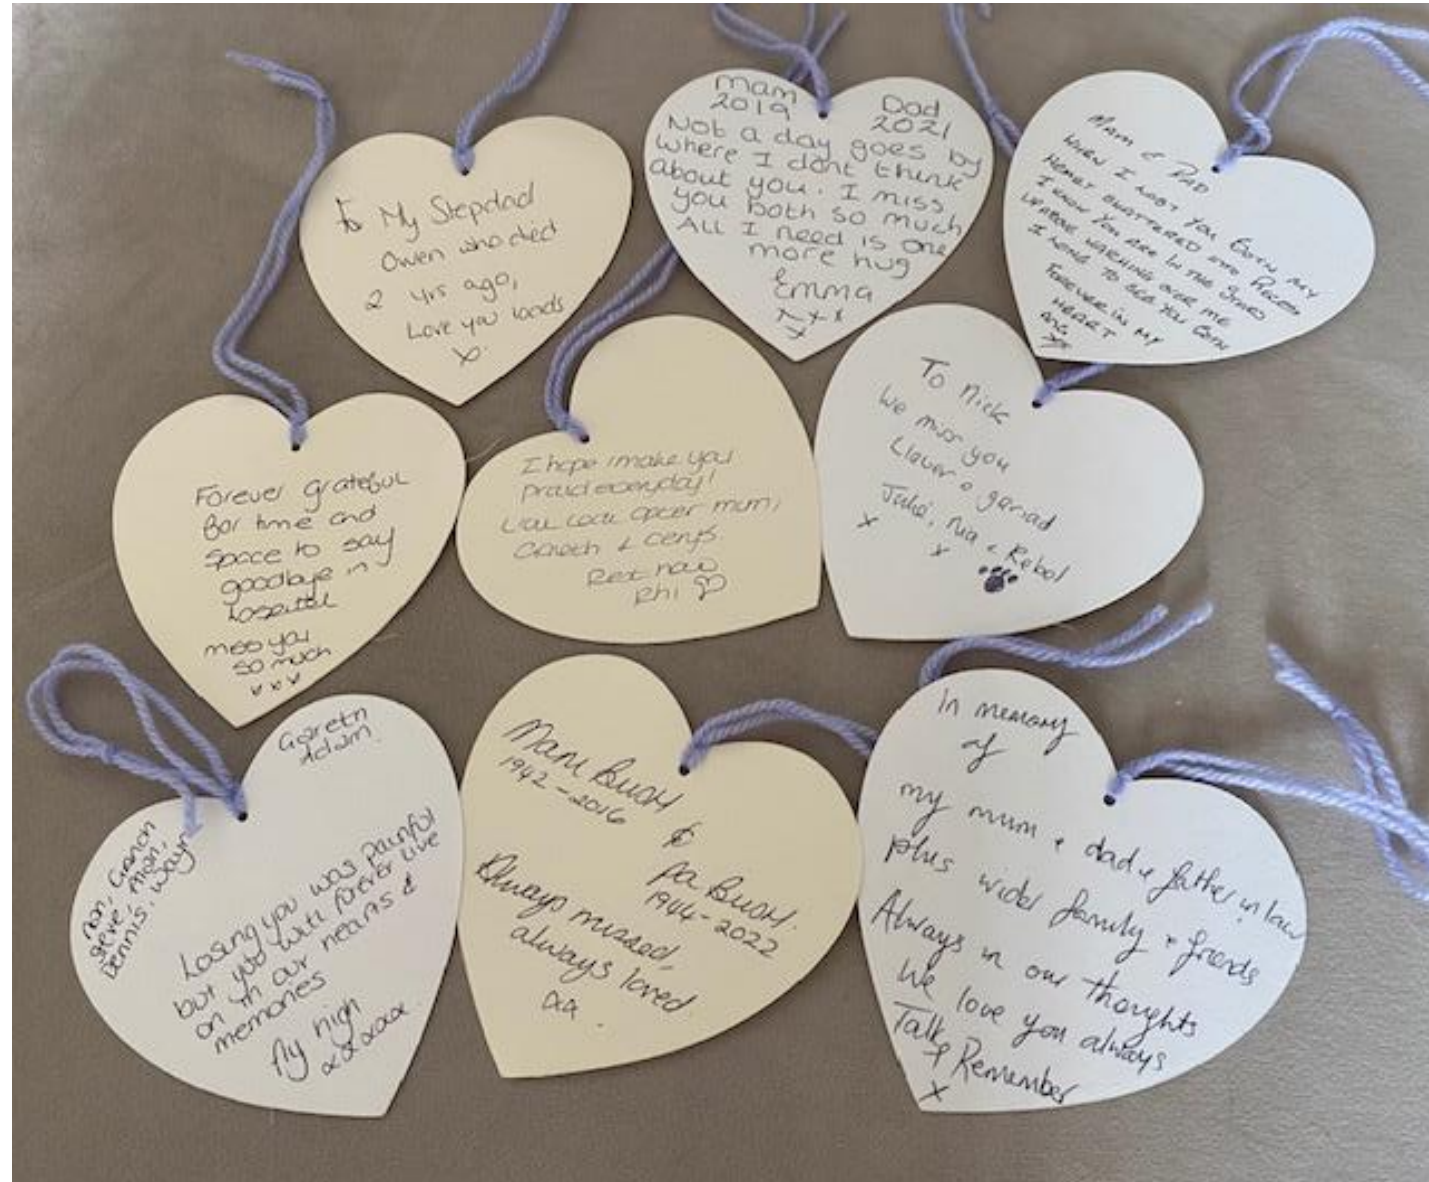 To My Stepdad
Owen who died
2 yrs ago,
Love you loads
x
Mam
2019
Dad
2021
Not a day goes by
where I dont think
about you. I miss
you both so much
All I need is one
more hug
Emma
x x x
x
Mam & Dad
WHEN I LOST YOU BOTH MY
HEART SHATTERED INTO PIECES
I KNOW YOU ARE IN THE
UP ABOVE WATCHING OVER ME
I LONG TO SEE YOU BOTH
FOREVER IN MY
HEART
Forever grateful
for time and
space to say
goodbye in
hospital
miss you
so much
x x x
I hope i make you
proud everyday!
mum,
Gareth & Cerys
Rest now
Rhi ♡
To Nick
We miss you
Llawer o gariad
Julie, Nia & Rebel
x x
Gareth
Adam.
Non, Granch
Steve, Mon,
Dennis, Wayne
Losing you was painful
but you will forever live
on in our hearts &
memories
fly high
xxxxxx
Mam Bush
1942-2016
&
Pa Bush.
1944-2022
Always missed,
always loved
xx.
In memory
of
my mum & dad & father in law
plus wider family & friends
Always in our thoughts
We love you always
Talk & Remember
x